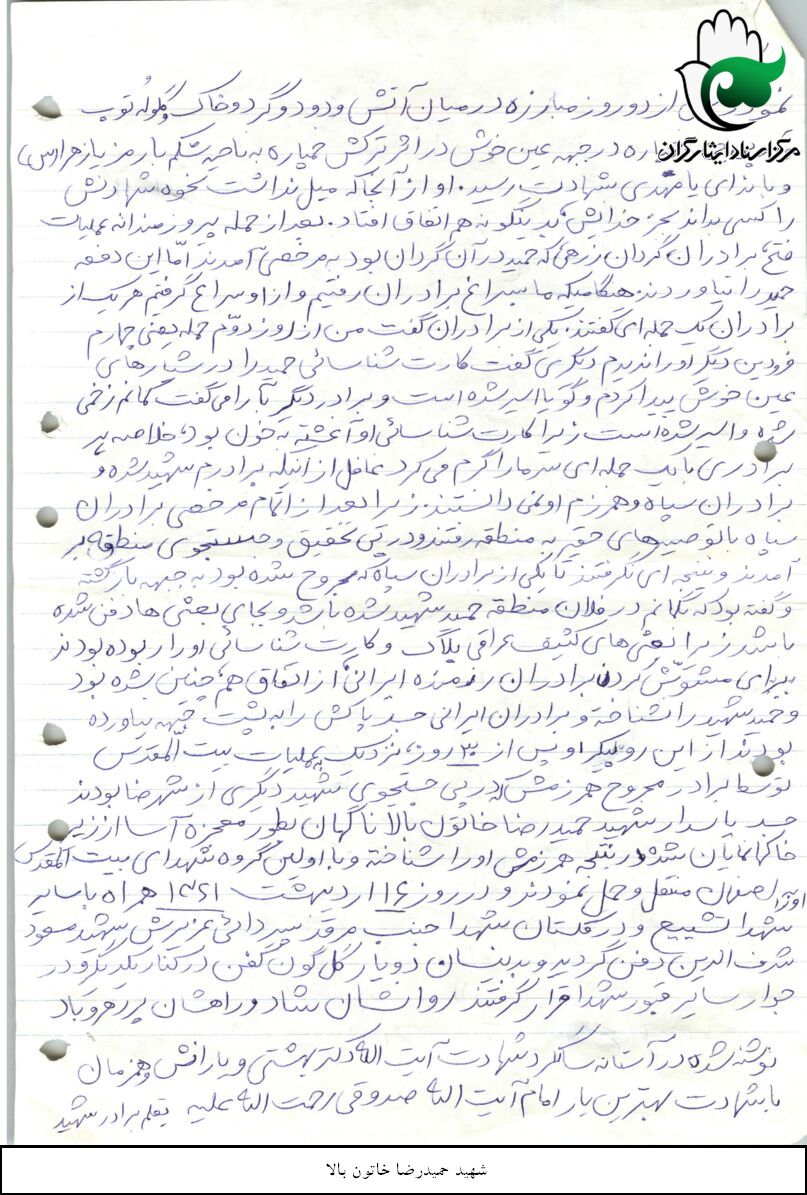 مرکز اسناد ایثارگران
از دو روز مبارزه در میان آتش و دود و گرد و خاک و گلوله توپ
در جبهه عین خوش در اثر ترکش خمپاره به ناحیه شکم با رمز یا زهرا (س)
و با ندای یا مهدی شهادت رسید. او از آنجا که میل نداشت نحوه شهادتش
را کسی بداند بجز خدایش، بدینگونه هم اتفاق افتاد. بعد از حمله پیروزمندانه عملیات
فتح، برادران گردان زرهی که حمید در آن گردان بود به مرخصی آمدند اما این دفعه
حمید را نیاوردند. هنگامیکه ما بسراغ برادران رفتیم و از او سراغ گرفتیم هر یک از
برادران یک جمله ای گفتند. یکی از برادران گفت من از روز دوّم حمله یعنی چهارم
فرودین دیگر او را ندیدم دیگری گفت کارت شناسائی حمید را در شیارهای
عین خوش پیدا کردم و گویا اسیر شده است و برادر دیگر ما را می گفت گمانم زخمی
شده و اسیر شده است زیرا کارت شناسائی او آغشته به خون بود، خلاصه هر
برادری با یک جمله ای سر ما را گرم می کرد غافل از اینکه برادرم شهید شده و
برادران سپاه و همرزم او نمی دانستند. زیرا بعد از اتمام مرخصی برادران
سپاه با توصیه های حقیر به منطقه رفتند و در پی تحقیق و جستجوی منطقه بر
آمدند و نتیجه ای نگرفتند تا یکی از برادران سپاه که مجروح شده بود به جبهه بازگشته
و گفته بود که گمانم در فلان منطقه حمید شهید شده باشد و بجای بعثی ها دفن شده
باشد زیرا بعثی های کثیف عراقی پلاک و کارت شناسائی او را ربوده بودند
برای مشوّش کردن برادران رزمنده ایرانی، از اتفاق هم، چنین شده بود
و حمید شهید را نشناخته و برادران ایرانی جسد پاکش را به پشت جبهه نیاورده
بودند از این رو پیکر او پس از ۳۰ روز، نزدیک به عملیات بیت المقدس
توسط برادر مجروح همرزمش که در پی جستجوی شهید دیگری از شهرضا بودند
جسد پاسدار شهید حمیدرضا خاتون بالا ناگهان بطور معجزه آسا از زیر
خاکها نمایان شده در نتیجه همرزمش او را شناخته و با اولین گروه شهدای بیت المقدس
او را به اصفهان منتقل و حمل نمودند و در روز ۱۶ اردیبهشت ۱۳۶۱ همراه با سایر
شهدا تشییع و در گلستان شهدا جنب مرقد پسر دائی عزیزش شهید مسعود
شرف الدین دفن گردید و بدینسان دو یار گل گون کفن در کنار یکدیگر و در
جوار سایر قبور شهدا قرار گرفتند روانشان شاد و راهشان پر رهرو باد
نوشته شده در آستانه سالگرد شهادت آیت الله دکتر بهشتی و یارانش و همزمان
با شهادت بهترین یار امام آیت الله صدوقی رحمت الله علیه بقلم برادر شهید
شهید حمیدرضا خاتون بالا